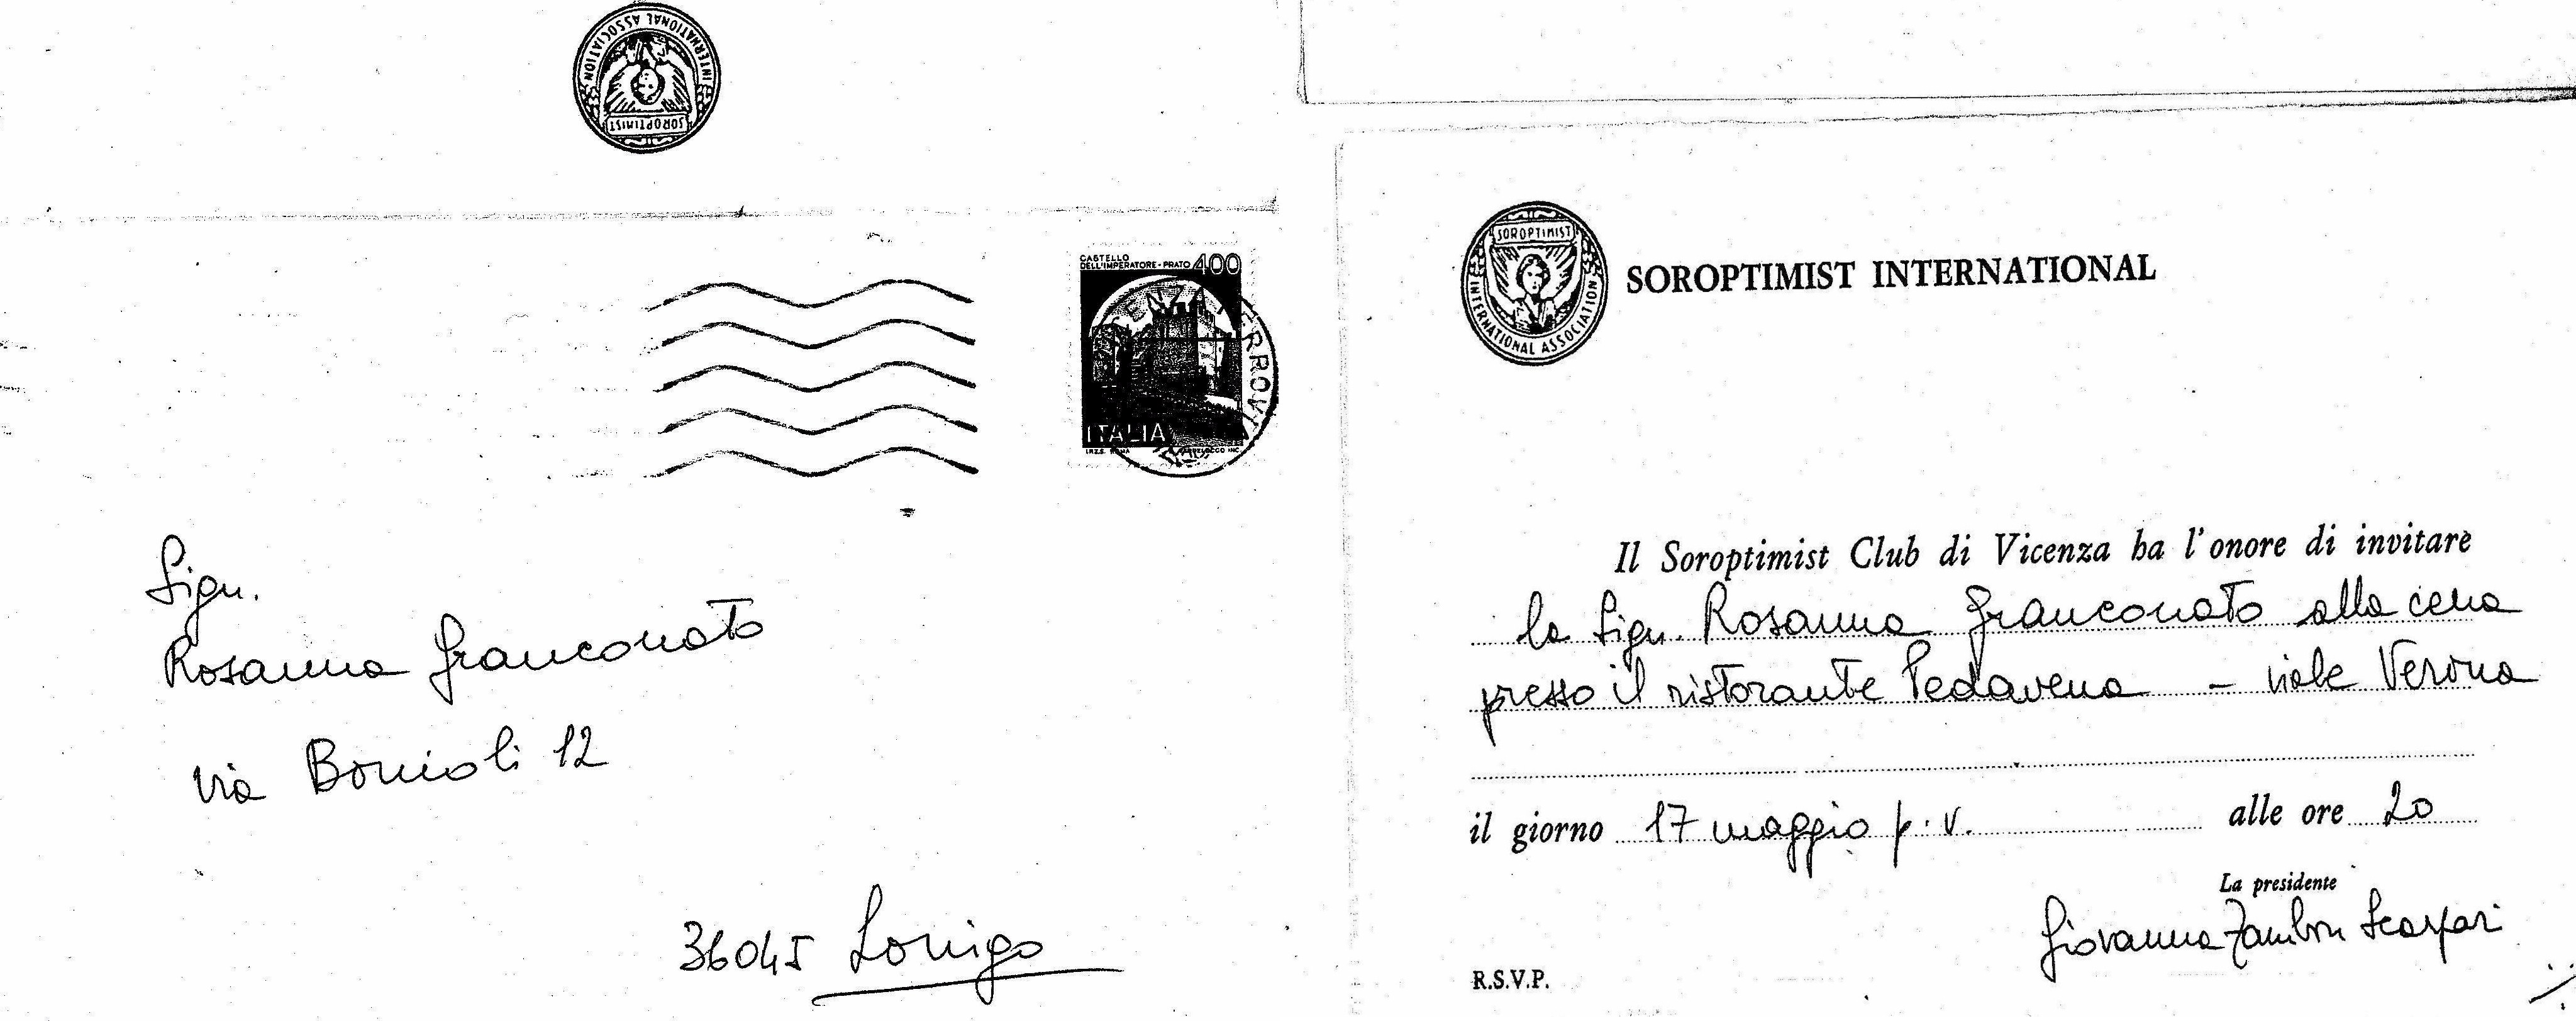 SOROPTIMIST
INTERNATIONAL ASSOCIATION
CASTELLO
DELL'IMPERATORE - PRATO 400
ITALIA
I.P.Z.S. ROMA
FERROVIA
Sign.
Rosanna Franconato
via Bonioli 12
36045 Lonigo
SOROPTIMIST
INTERNATIONAL ASSOCIATION
SOROPTIMIST INTERNATIONAL
Il Soroptimist Club di Vicenza ha l'onore di invitare
la Sign. Rosanna Franconato alla cena
presso il ristorante Pedavena - viale Verona
il giorno 17 maggio p.v. alle ore 20
La presidente
Giovanna Zambon Scarpari
R.S.V.P.